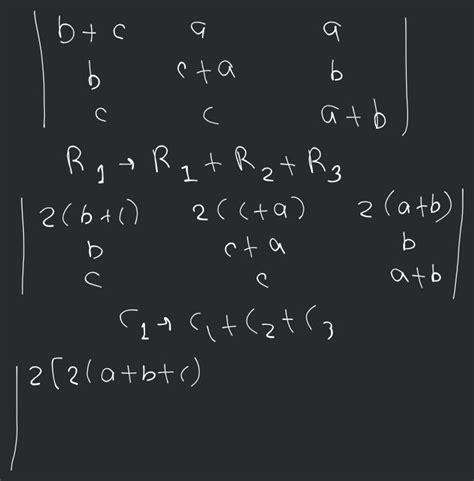 | b+c a a |
| b c+a b |
| c c a+b |
R1 → R1 + R2 + R3
| 2(b+c) 2(c+a) 2(a+b) |
| b c+a b |
| c c a+b |
C1 → C1 + C2 + C3
| 2[2(a+b+c)